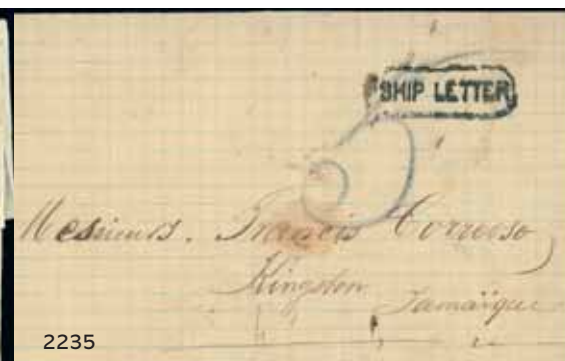 SHIP LETTER
Messieurs. Francis Correoso
Kingston
Jamaïque
2235